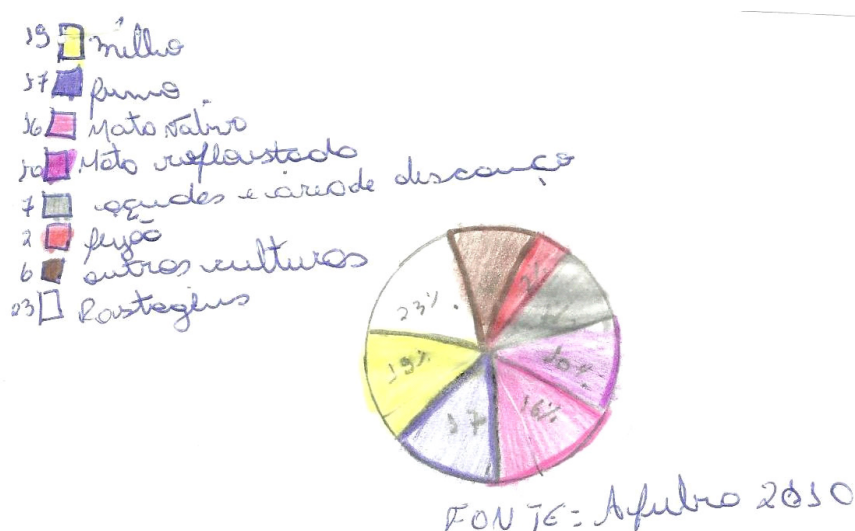 19 milho
17 fumo
16 Mato nativo
10 Mato reflorestado
7 açudes e área de descanço
2 feijão
6 outras culturas
23 Pastagens
23%
2%
19%
10%
17
16%
FONTE: Afubra 2010